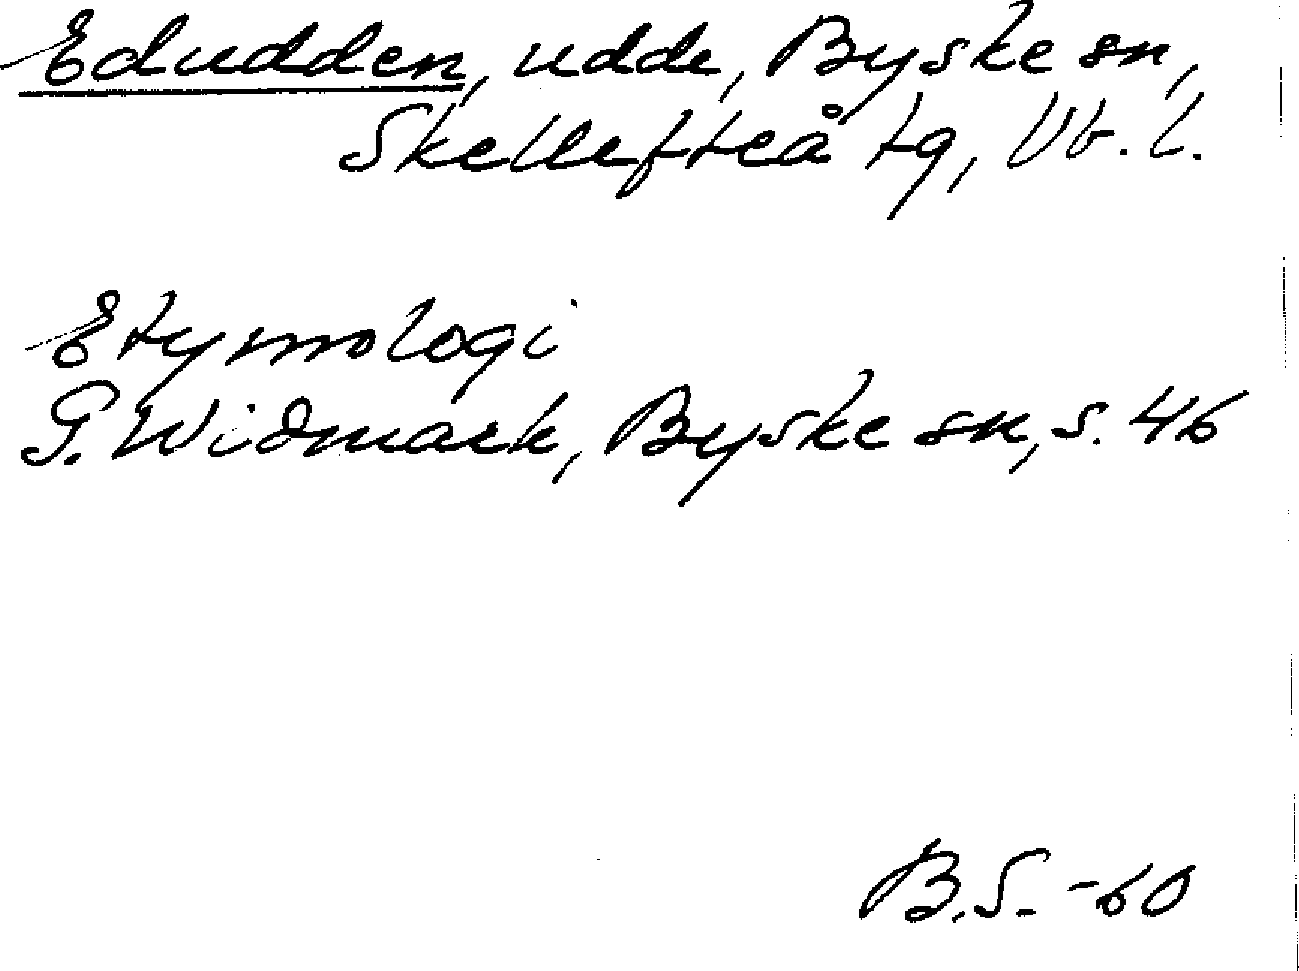 Edudden, udde, Byske sn,
Skellefteå tg, Vb. l.
Etymologi
G. Widmark, Byske sn, s. 46
B.S. -60